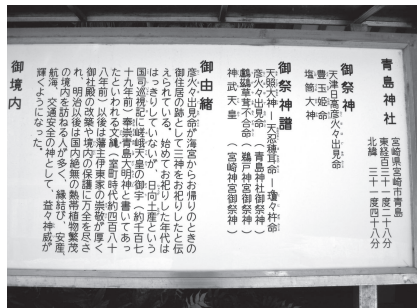 青島神社
宮崎県宮崎市青島
東経百三十一度二十八分
北緯 三十一度四十八分
御祭神
天津日高彦火々出見命
豊玉姫命
塩筒大神
御祭神譜
天照大神―天忍穂耳命―瓊々杵命
彦火々出見命(青島神社御祭神)
鵜鶿草葺不合命(鵜戸神宮御祭神)
神武天皇(宮崎神宮御祭神)
御由緒
彦火々出見命が海宮からお帰りのときの
御住居の跡として三神をお祀りしたと伝
えられている。始めてお祀りした年代は
はっきりしていないが、日向土産という
国司巡視記に嵯峨天皇の御宇(約千百七
十九年前)奉崇青島大明神と書いてあっ
たといわれる文亀(室町時代約四百八十
八年前)以後は藩主伊東家の崇敬が厚く
御社殿の改築や境内の保護に万全を尽さ
れ、明治以後は国内絶無の熱帯植物繁茂
の境内を訪ねる人が多く、縁結び、安産、
航海、交通安全の神として、益々神威が
輝くようになった。
御境内